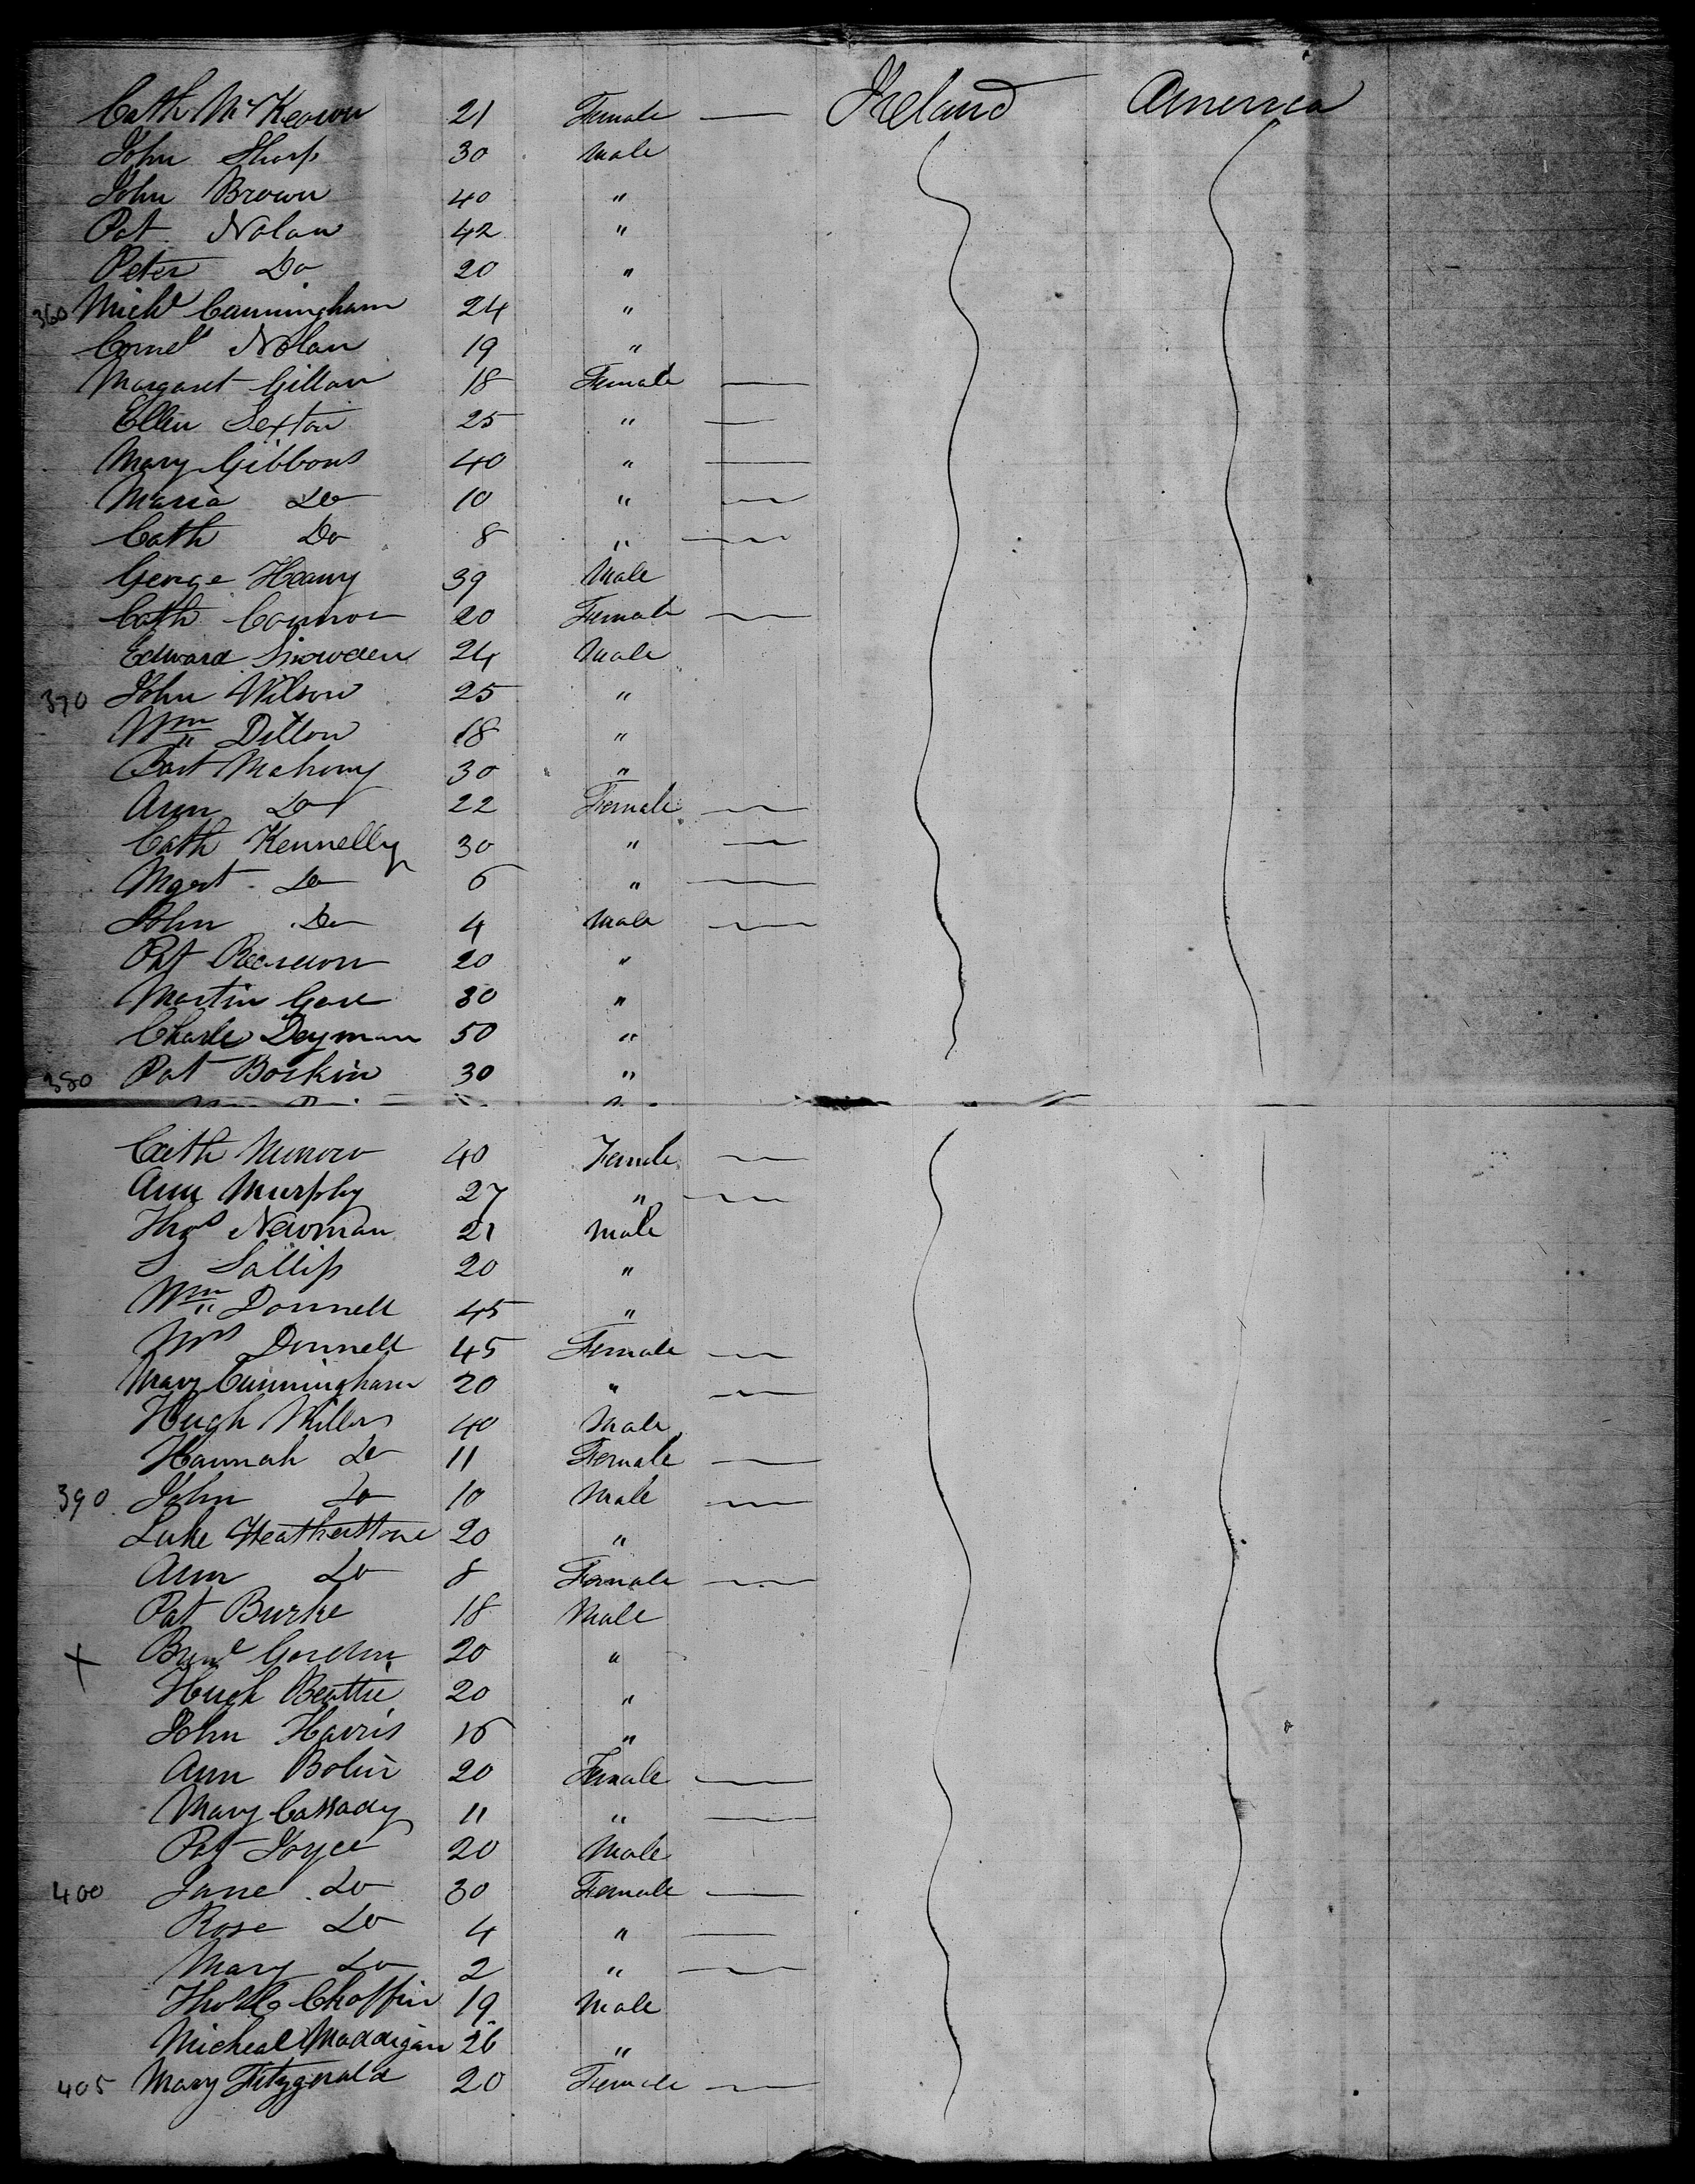 Cath McKeown 21 Female — Ireland America
John Sharp 30 Male
John Brown 40 "
Pat Nolan 42 "
Peter Do 20 "
360 Michl Cunningham 24 "
Cornels Nolan 19 "
Margaret Gillan 18 Female —
Ellen Sexton 25 " —
Mary Gibbons 40 " —
Maria Do 10 " —
Cath Do 8 " —
George Heavy 39 Male
Cath Connor 20 Female —
Edward Snowden 24 Male
370 John Wilson 25 "
Wm Dillon 18 "
Bart Mahony 30 "
Ann Do 22 Female —
Cath Kennelly 30 " —
Mgert Do 6 " —
John Do 4 Male —
Pat 20 "
Martin 30 "
Charles Deyman 50 "
380 Pat Boskin 30 "
Cath Munroo 40 Female —
Ann Murphy 27 " —
Thos Newman 21 Male
S Sallip 20 "
Wm Donnell 45 "
Mrs Donnell 45 Female —
Mary Cunningham 20 " —
Hugh 40 Male
Hannah Do 11 Female —
390 John Do 10 Male —
Luke Heatherstone 20 "
Ann Do 8 Female —
Pat Burke 18 Male
+ Gordon 20 "
Hugh Beattie 20 "
John Harris 16 "
Ann Bolin 20 Female —
Mary Cassady 11 " —
Pat Joyce 20 Male
400 Jane Do 30 Female —
Rose Do 4 " —
Mary Do 2 " —
Chaffin 19 Male
Micheal Maddigan 26 "
405 Mary Fitzgerald 20 Female —